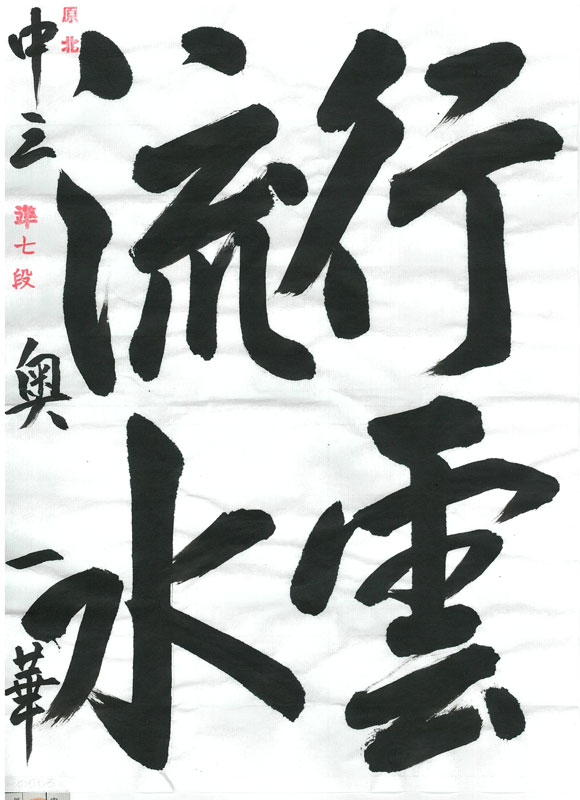 行雲
流水
原北
中三
準七段
奥一華